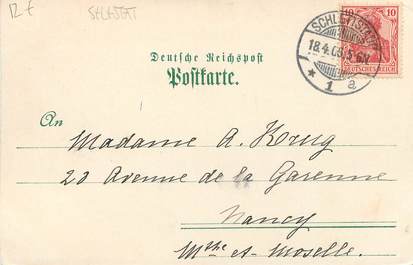 12 €
SELESTAT
SCHLETTSTADT
18.4.03.5-6N.
* 1 a
10 10
DEUTSCHES REICH
Deutsche Reichspost
Postkarte.
An
Madame A. Krug
20 Avenue de la Garenne
Nancy
Mthe et-Moselle.